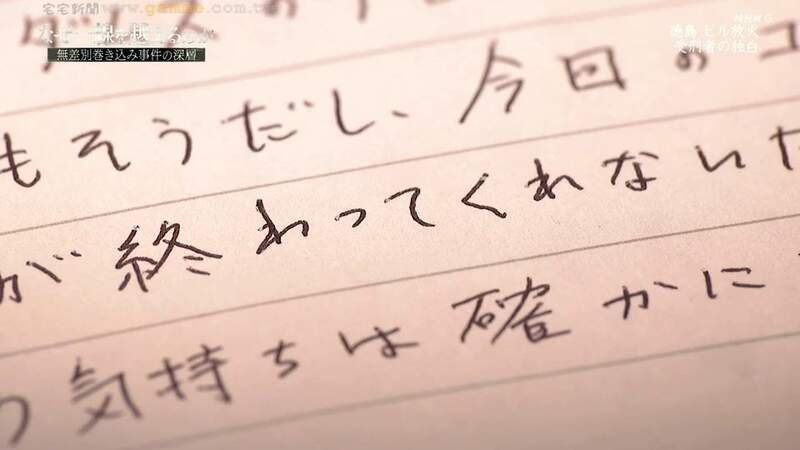 宅宅新聞
www.gamme.com.tw
無差別巻き込み事件の深層
NHK G
徳島 ビル放火
受刑者の独白
もそうだし、今日のコ
が終わってくれないた
気持ちは確かに